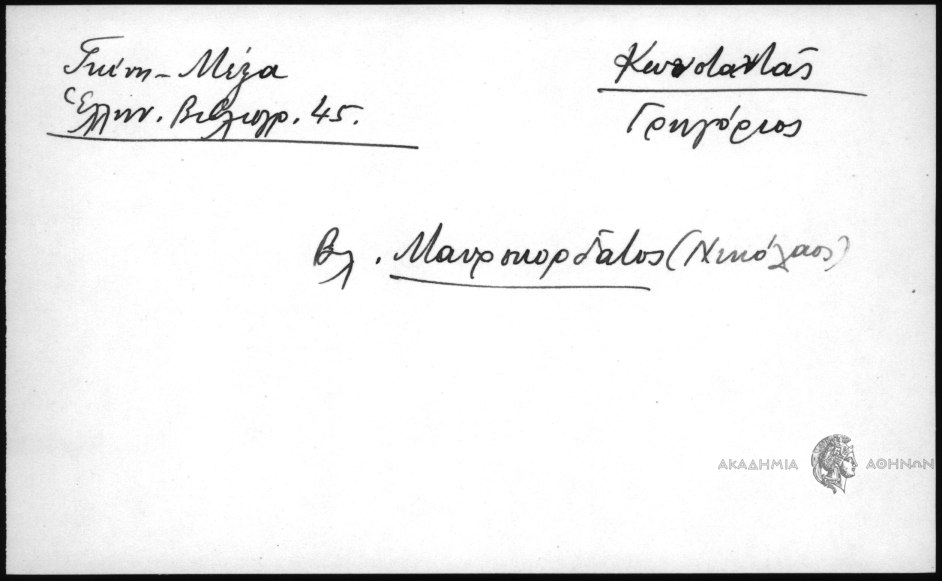 Γκίνη - Μέξα
Ἑλλην. Βιβλιογρ. 45.
Κωνσταντᾶς
Γρηγόριος
Βλ. Μαυροκορδᾶτος (Νικόλαος)
ΑΚΑΔΗΜΙΑ ΑΘΗΝΩΝ